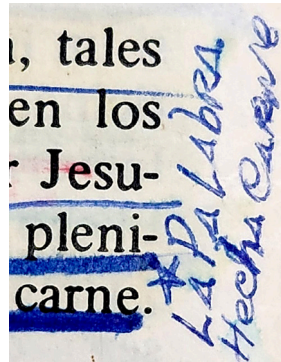 , tales
en los
r Jesu-
pleni-
carne.
*La Palabra
Hecha Carne